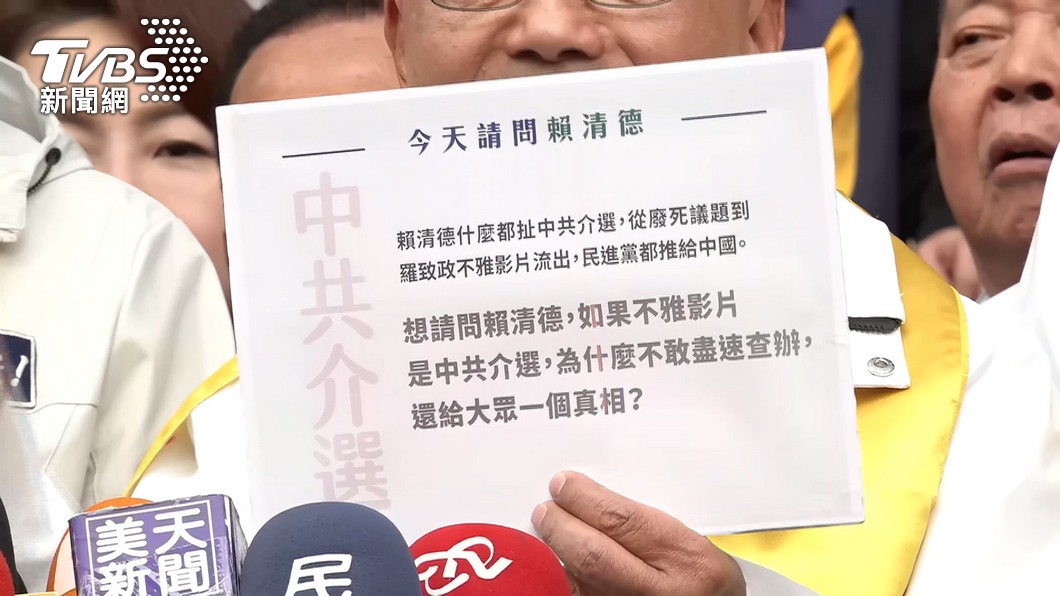 TVBS
新聞網
今天請問賴清德
中共介選
賴清德什麼都扯中共介選，從廢死議題到
羅致政不雅影片流出，民進黨都推給中國。
想請問賴清德，如果不雅影片
是中共介選，為什麼不敢盡速查辦，
還給大眾一個真相？
!
天
美
聞
新
民